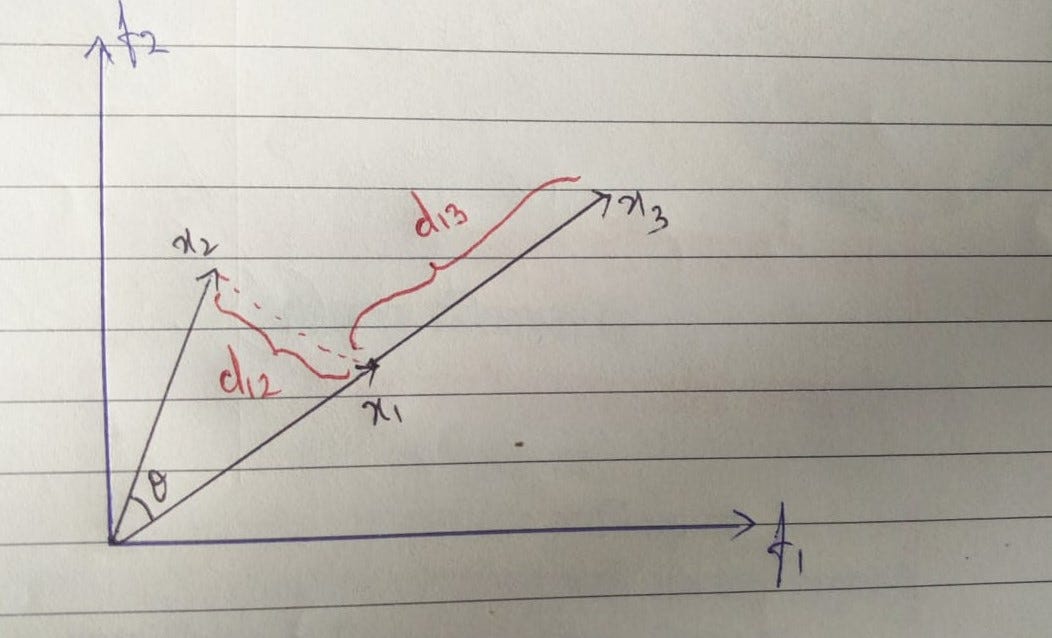 f2
x3
d13
x2
d12
x1
θ
f1